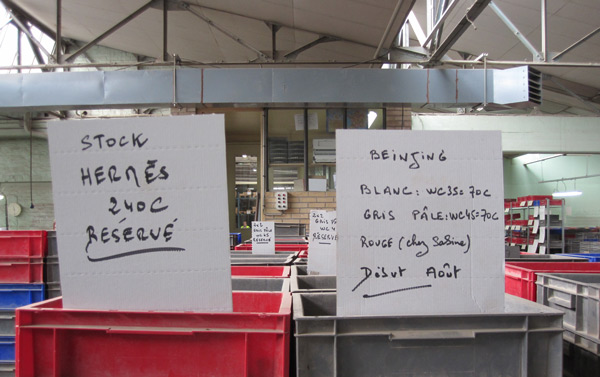 STOCK
HERMÈS
240C
RÉSERVÉ
BEINJING
BLANC: WC350=70C
GRIS PÂLE: WC450=70C
ROUGE (chez Sabine)
Début Août